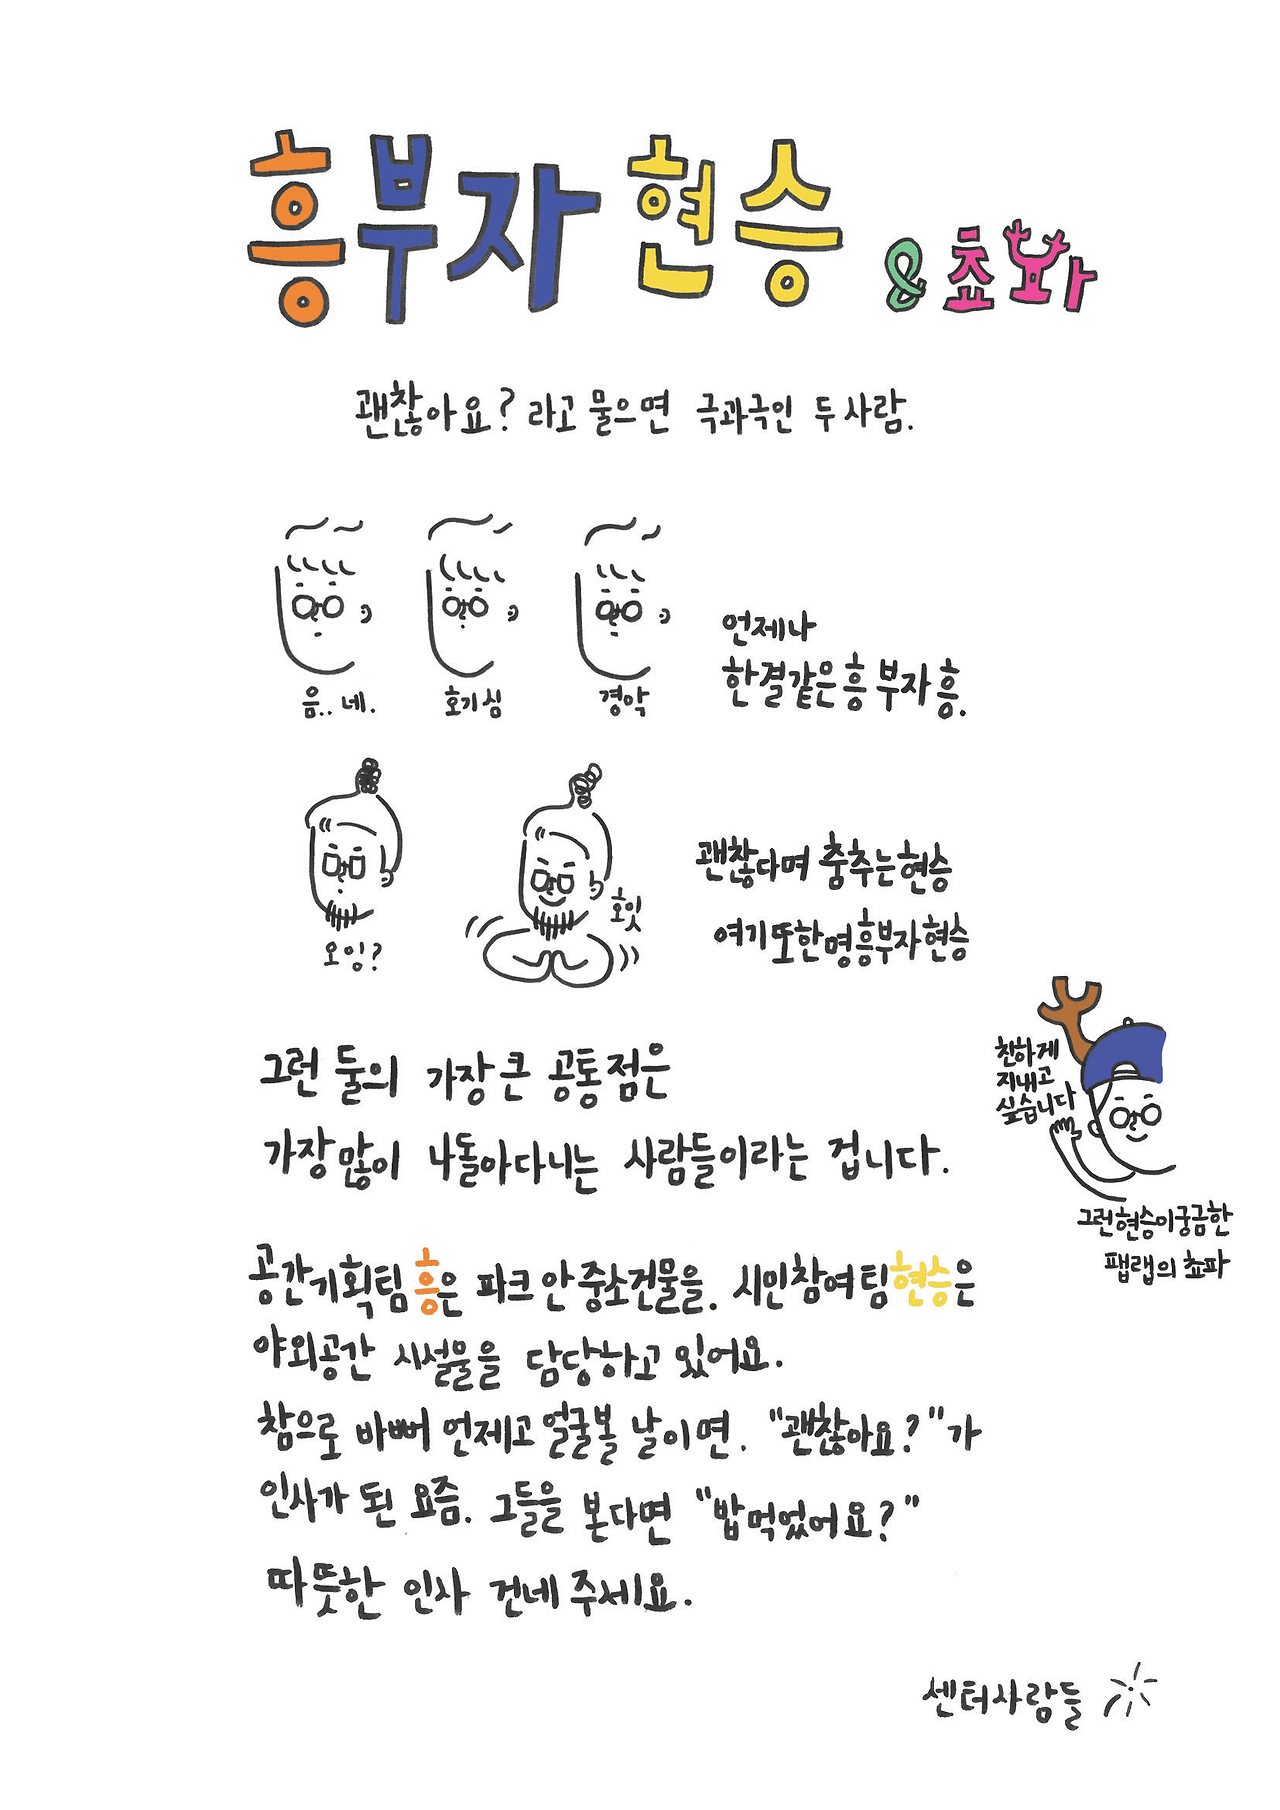 흥부자 현승 & 쵸파
괜찮아요? 라고 물으면 극과극인 두 사람.
음.. 네.
호기심
경악
언제나
한결같은 흥 부자 흥.
오잉?
호잇
괜찮다며 춤추는 현승
여기 또 한 명 흥부자 현승
그런 둘의 가장 큰 공통점은
가장 많이 나돌아다니는 사람들이라는 겁니다.
친하게
지내고
싶습니다
그런 현승이 궁금한
팹랩의 쵸파
공간기획팀 흥은 파크 안 중소건물을. 시민참여팀 현승은
야외공간 시설물을 담당하고 있어요.
참으로 바빠 언제고 얼굴볼 날이면. "괜찮아요?"가
인사가 된 요즘. 그들을 본다면 "밥먹었어요?"
따뜻한 인사 건네 주세요.
센터사람들